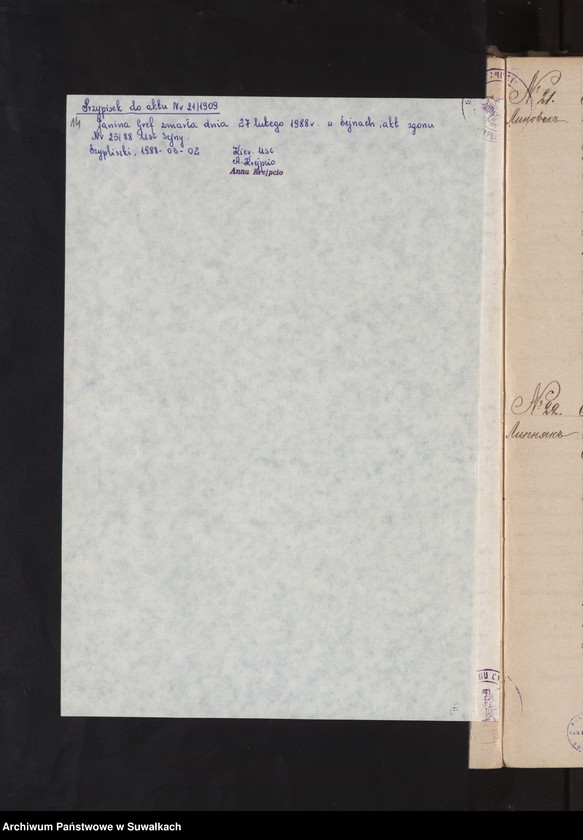 Przypisek do aktu Nr 21/1909
14 Janina Gref zmarła dnia 27 lutego 1988r. w Sejnach, akt zgonu
Nr 25/88 USC Sejny
Szypliszki, 1988-03-02
Kier. USC
A. Krejpcio
Anna Krejpcio
№ 21.
№ 22.
Archiwum Państwowe w Suwałkach